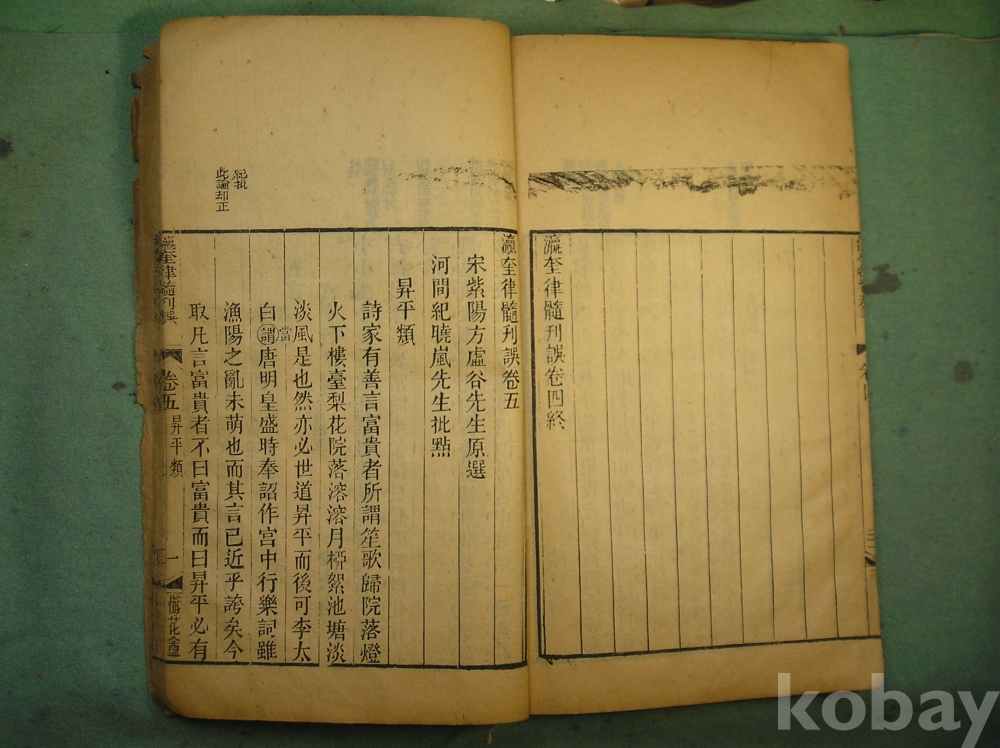 瀛奎律髓刊誤卷四終
瀛奎律髓刊誤卷五
宋紫陽方虛谷先生原選
河間紀曉嵐先生批點
昇平類
詩家有善言富貴者所謂笙歌歸院落燈
火下樓臺梨花院落溶溶月栁絮池塘淡
淡風是也然亦必世道昇平而後可李太
當
白謂唐明皇盛時奉詔作宮中行樂詞雖
漁陽之亂未萌也而其言已近乎誇矣今
取凡言富貴者不曰富貴而曰昇平必有
紀批
此論却正
瀛奎律髓刊誤
卷五
昇平類
一
懺花盦
kobay